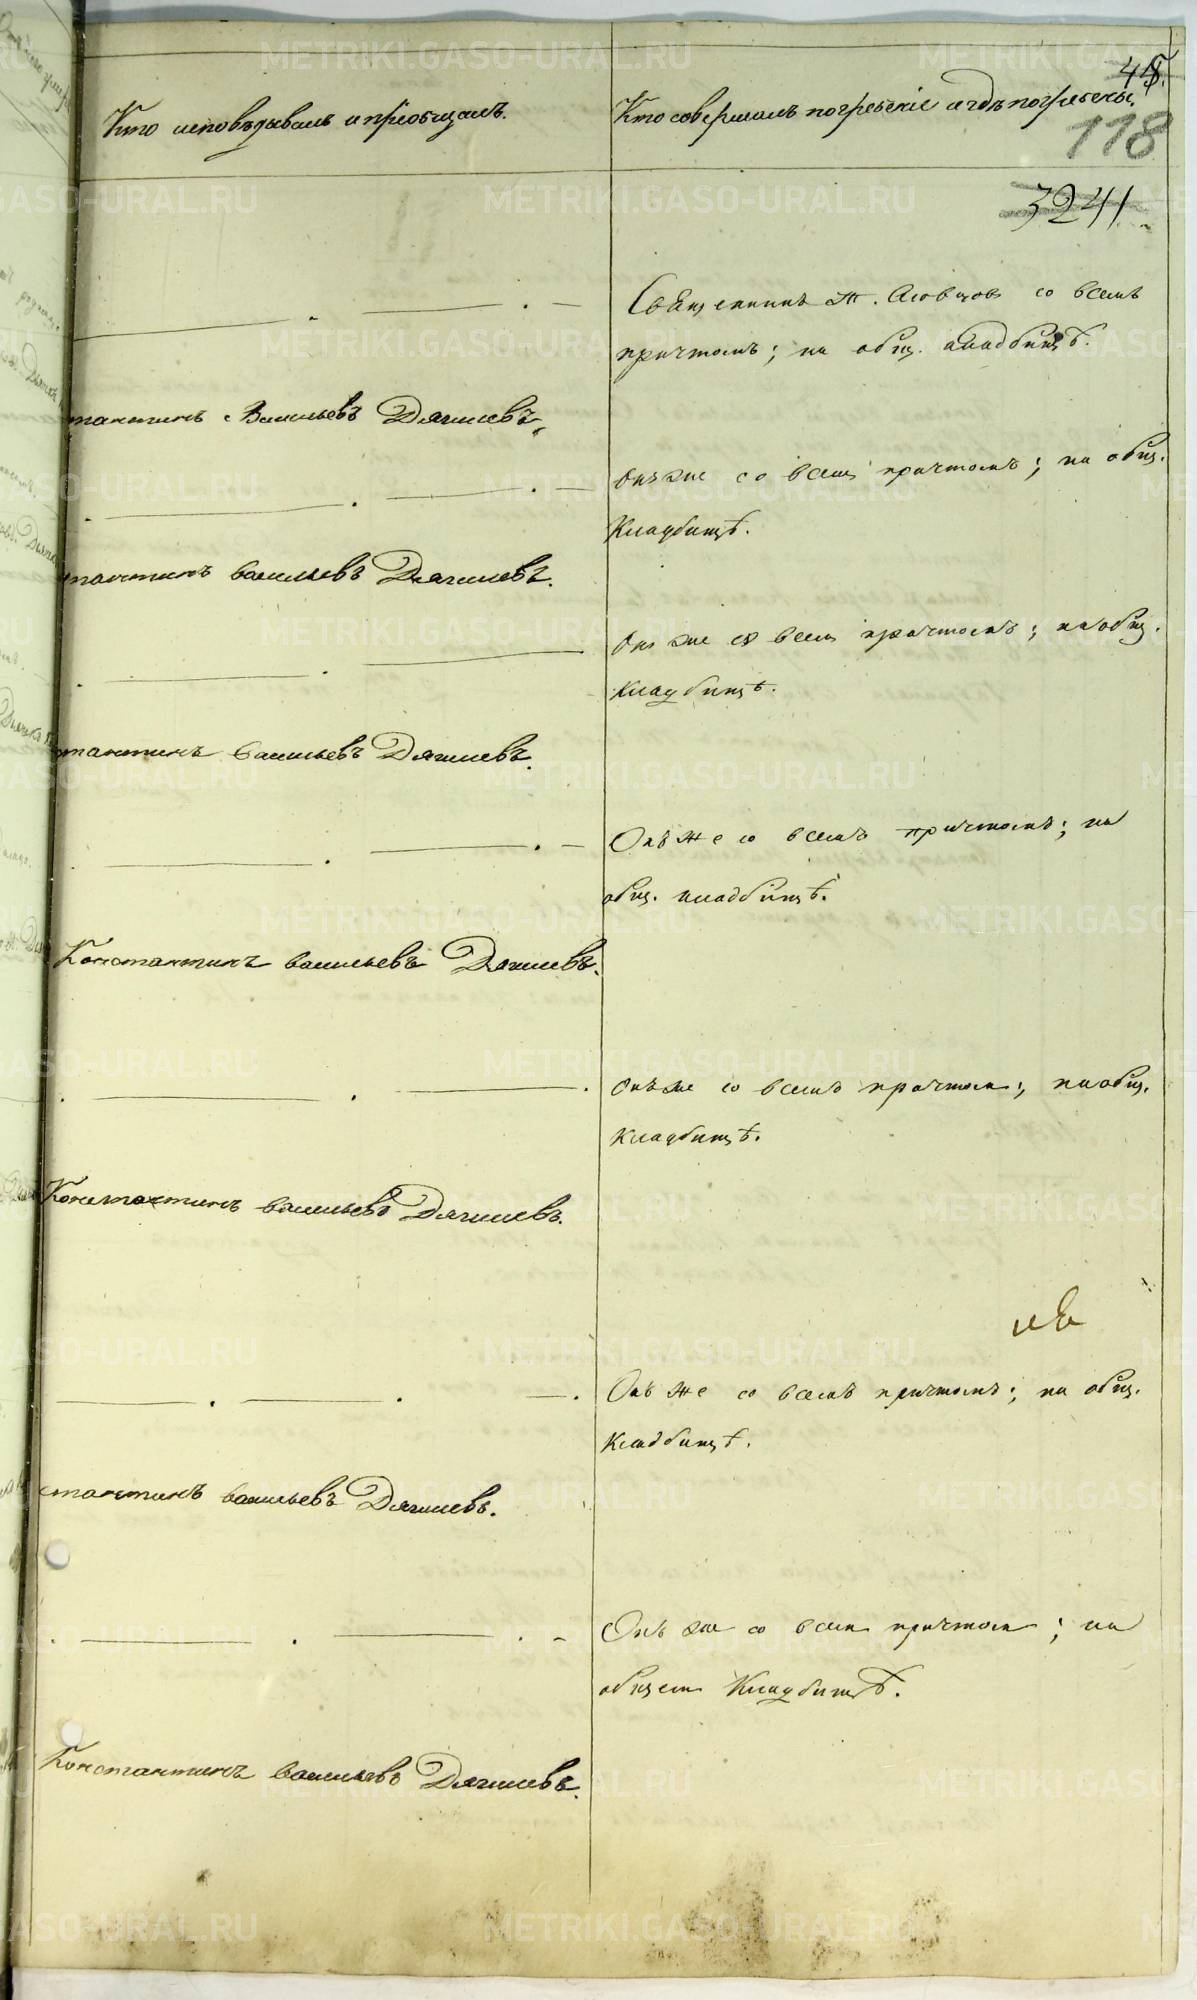 418.
Кто исповѣдывалъ и прiобщалъ.
Кто совершалъ погребенiе и гдѣ погребены.
118
3241
Священникъ со всемъ
причтомъ; на общ. кладбищѣ.
стантинъ Васильевъ Дягилевъ.
Онъ же со всем причтомъ; на общ.
Кладбищѣ.
стантинъ Васильевъ Дягилевъ.
Онъ же со всем причтомъ; на общ.
кладбищѣ.
стантинъ Васильевъ Дягилевъ.
Онъ же со всемъ причтомъ; на
общ. кладбищѣ.
Константинъ Васильевъ Дягилевъ.
Онъ же со всемъ причтом; на общ.
кладбищѣ.
Константинъ Васильевъ Дягилевъ.
Онъ же со всемъ причтомъ; на общ.
Кладбищѣ.
стантинъ Васильевъ Дягилевъ.
Онъ же со всем причтом; на
общем Кладбищѣ.
Константинъ Васильевъ Дягилевъ.
METRIKI.GASO-URAL.RU